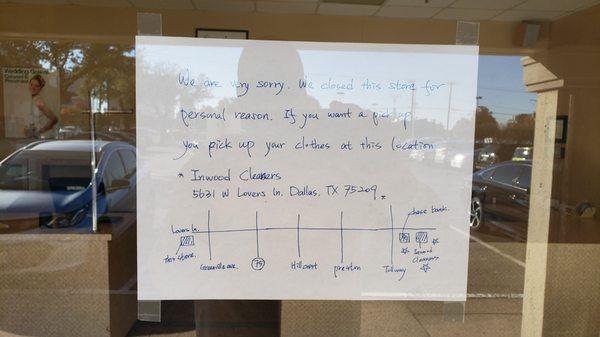 Wedding Gowns
Cleaned &
Preserved
We are very sorry. We closed this store for
personal reason. If you want a pick up
you pick up your clothes at this location
* Inwood Cleaners
5631 W Lovers ln. Dallas, TX 75209 *
chase bank.
Lovers ln.
this store.
Greenville ave.
75
Hillcrest
preston
Tollway
Inwood
Cleaners